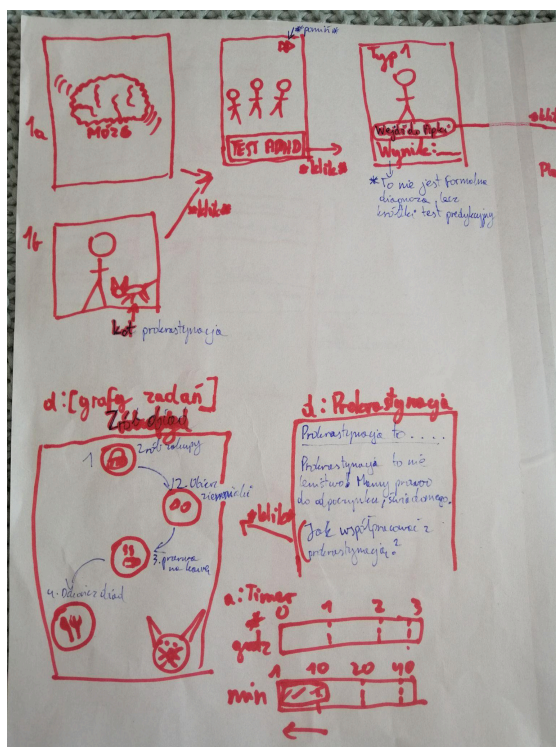 1a
MÓZG
*klik*
*pomiń*
TEST ADHD
*klik*
Typ 1
Wejdź do Apki
Wynik:
*To nie jest formalna
diagnoza, lecz
krótki test predykcyjny
*klik
1b
kot prokrastynacja
d: [grafy zadań]
Zrób obiad
1 Zrób zakupy
2. Obierz
ziemniaki
3. przerwa
na kawę
4. Dokończ obiad
d: Prokrastynacja
Prokrastynacja to .....
Prokrastynacja to nie
lenistwo! Mamy prawo
do odpoczynku, świadomego.
Jak współpracować z
prokrastynacją?
*klik*
a: Timer
0 1 2 3
godz
1 10 20 40
min